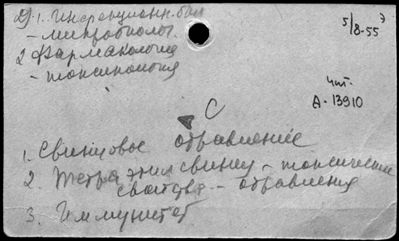 1. Инфекционн. бол
- микробиолог.
2 Фармакология
- токсикология
5/8-55
чит.
А-13910
С
1. Свинцовое отравление
2. Тетраэтилсвинец - токсические
свойства - отравления
3. Иммунитет